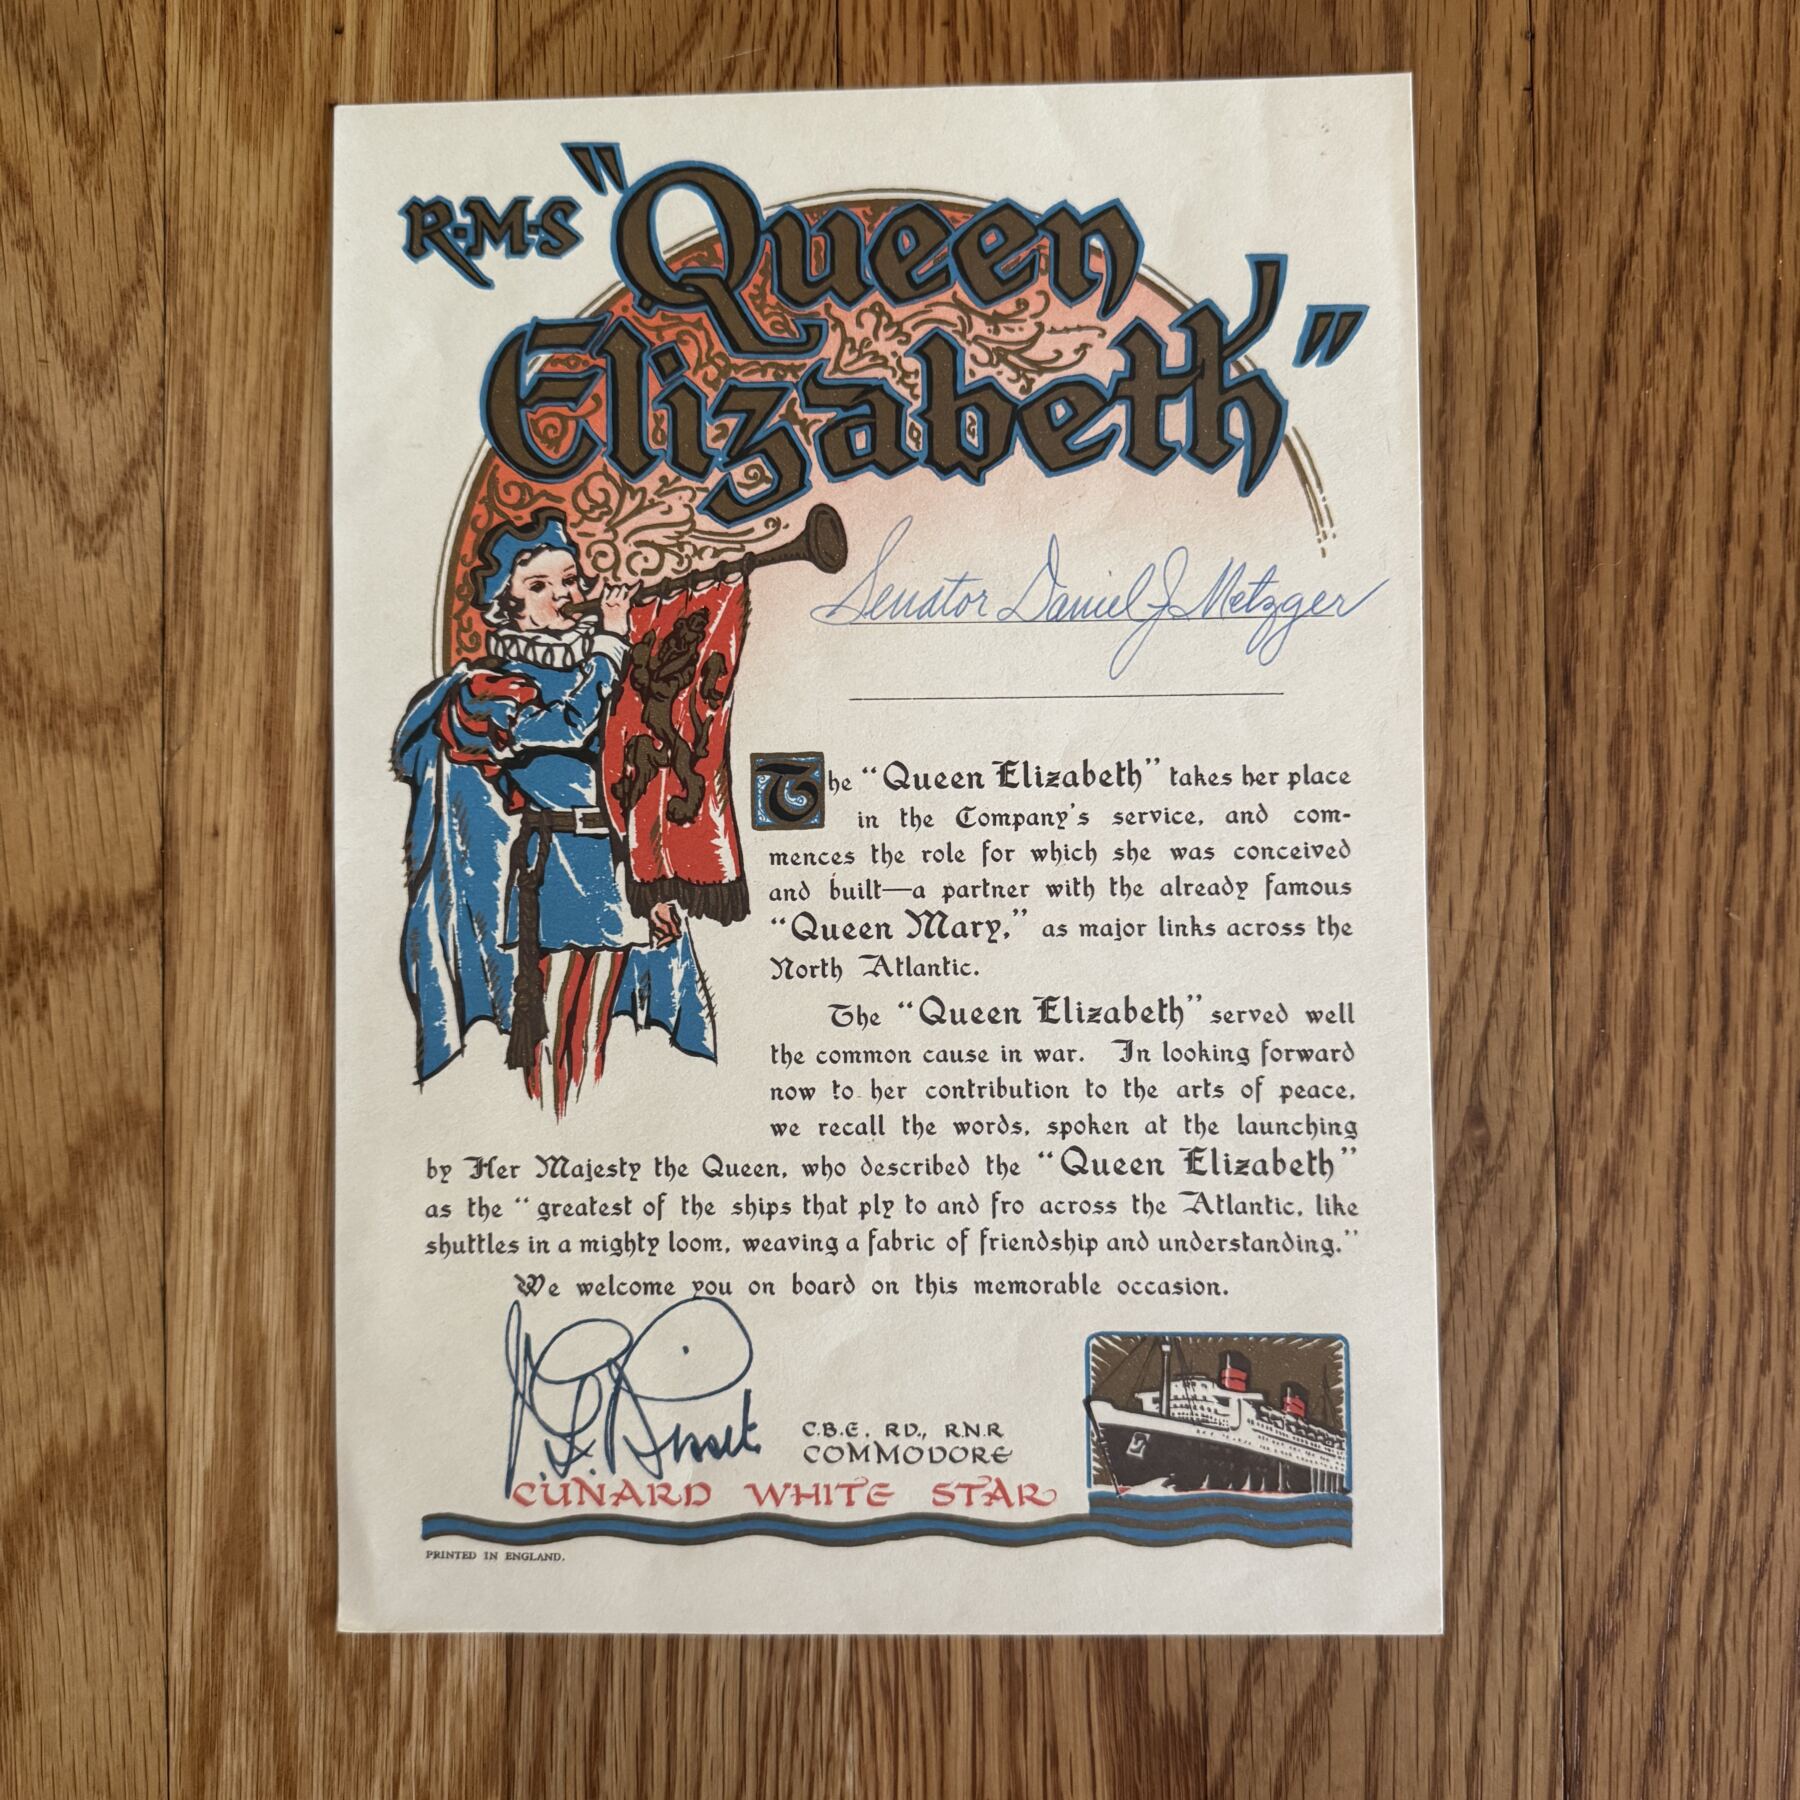 R·M·S "Queen
Elizabeth"
Senator Daniel J Metzger
The "Queen Elizabeth" takes her place
in the Company's service, and com-
mences the role for which she was conceived
and built—a partner with the already famous
"Queen Mary," as major links across the
North Atlantic.
The "Queen Elizabeth" served well
the common cause in war. In looking forward
now to her contribution to the arts of peace,
we recall the words, spoken at the launching
by Her Majesty the Queen, who described the "Queen Elizabeth"
as the "greatest of the ships that ply to and fro across the Atlantic, like
shuttles in a mighty loom, weaving a fabric of friendship and understanding."
We welcome you on board on this memorable occasion.
C.B.E., RD., R.N.R
COMMODORE
CUNARD WHITE STAR
PRINTED IN ENGLAND.